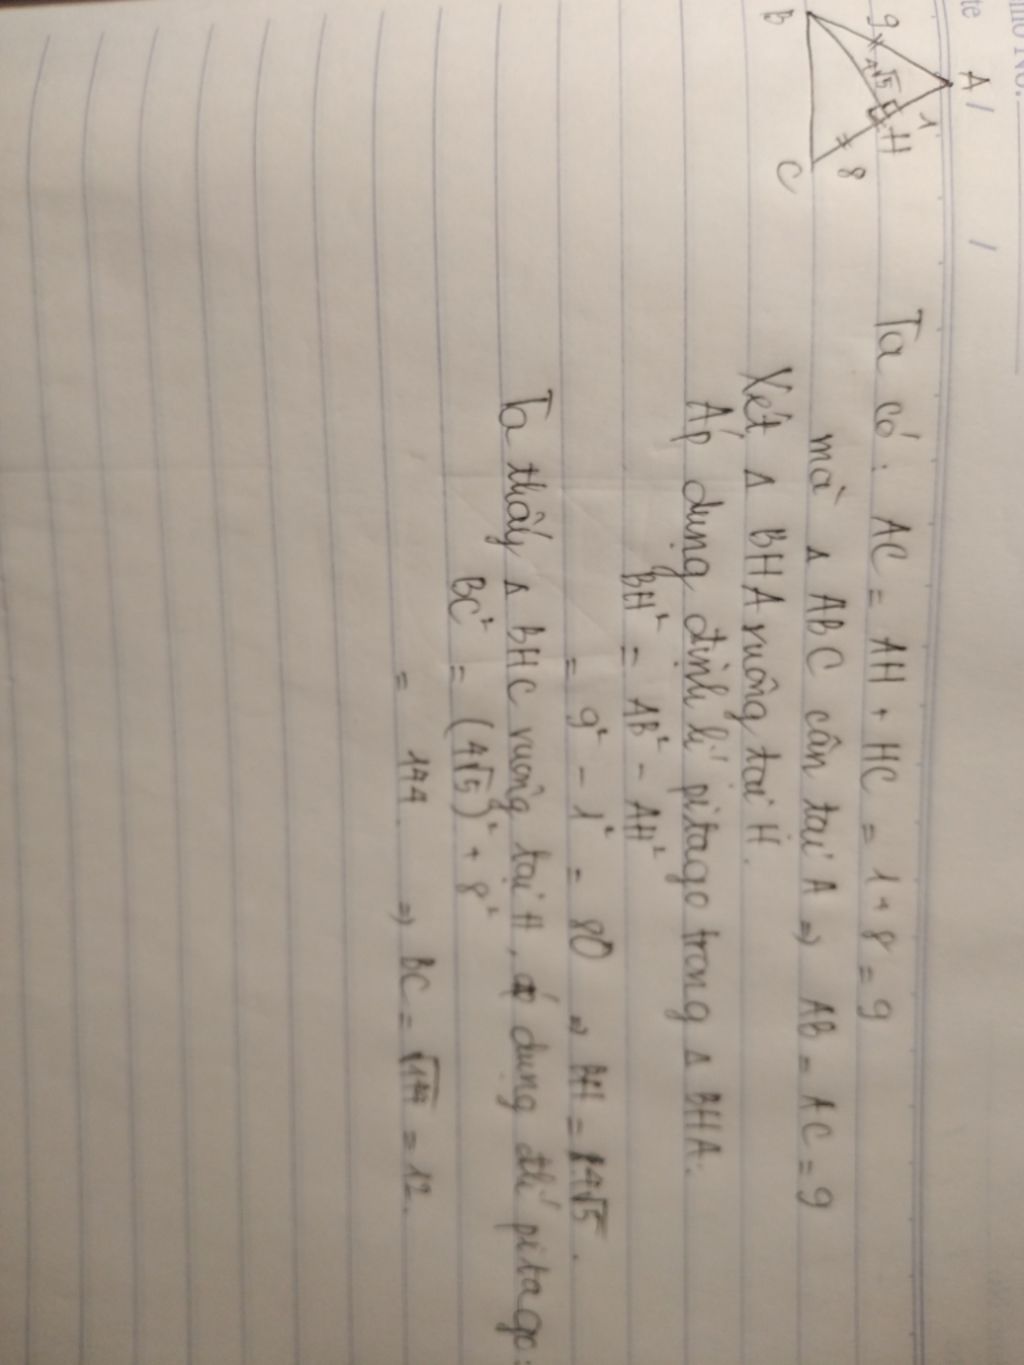 A
B
C
H
9
1
8
4√5
Ta có: AC = AH + HC = 1 + 8 = 9
mà Δ ABC cân tại A ⇒ AB = AC = 9
Xét Δ BHA vuông tại H.
Áp dụng định lí pitago trong Δ BHA.
BH² = AB² - AH²
= 9² - 1² = 80 ⇒ BH = 4√5.
Ta thấy Δ BHC vuông tại H, áp dụng đlí pitago:
BC² = (4√5)² + 8²
= 144. ⇒ BC = √144 = 12.